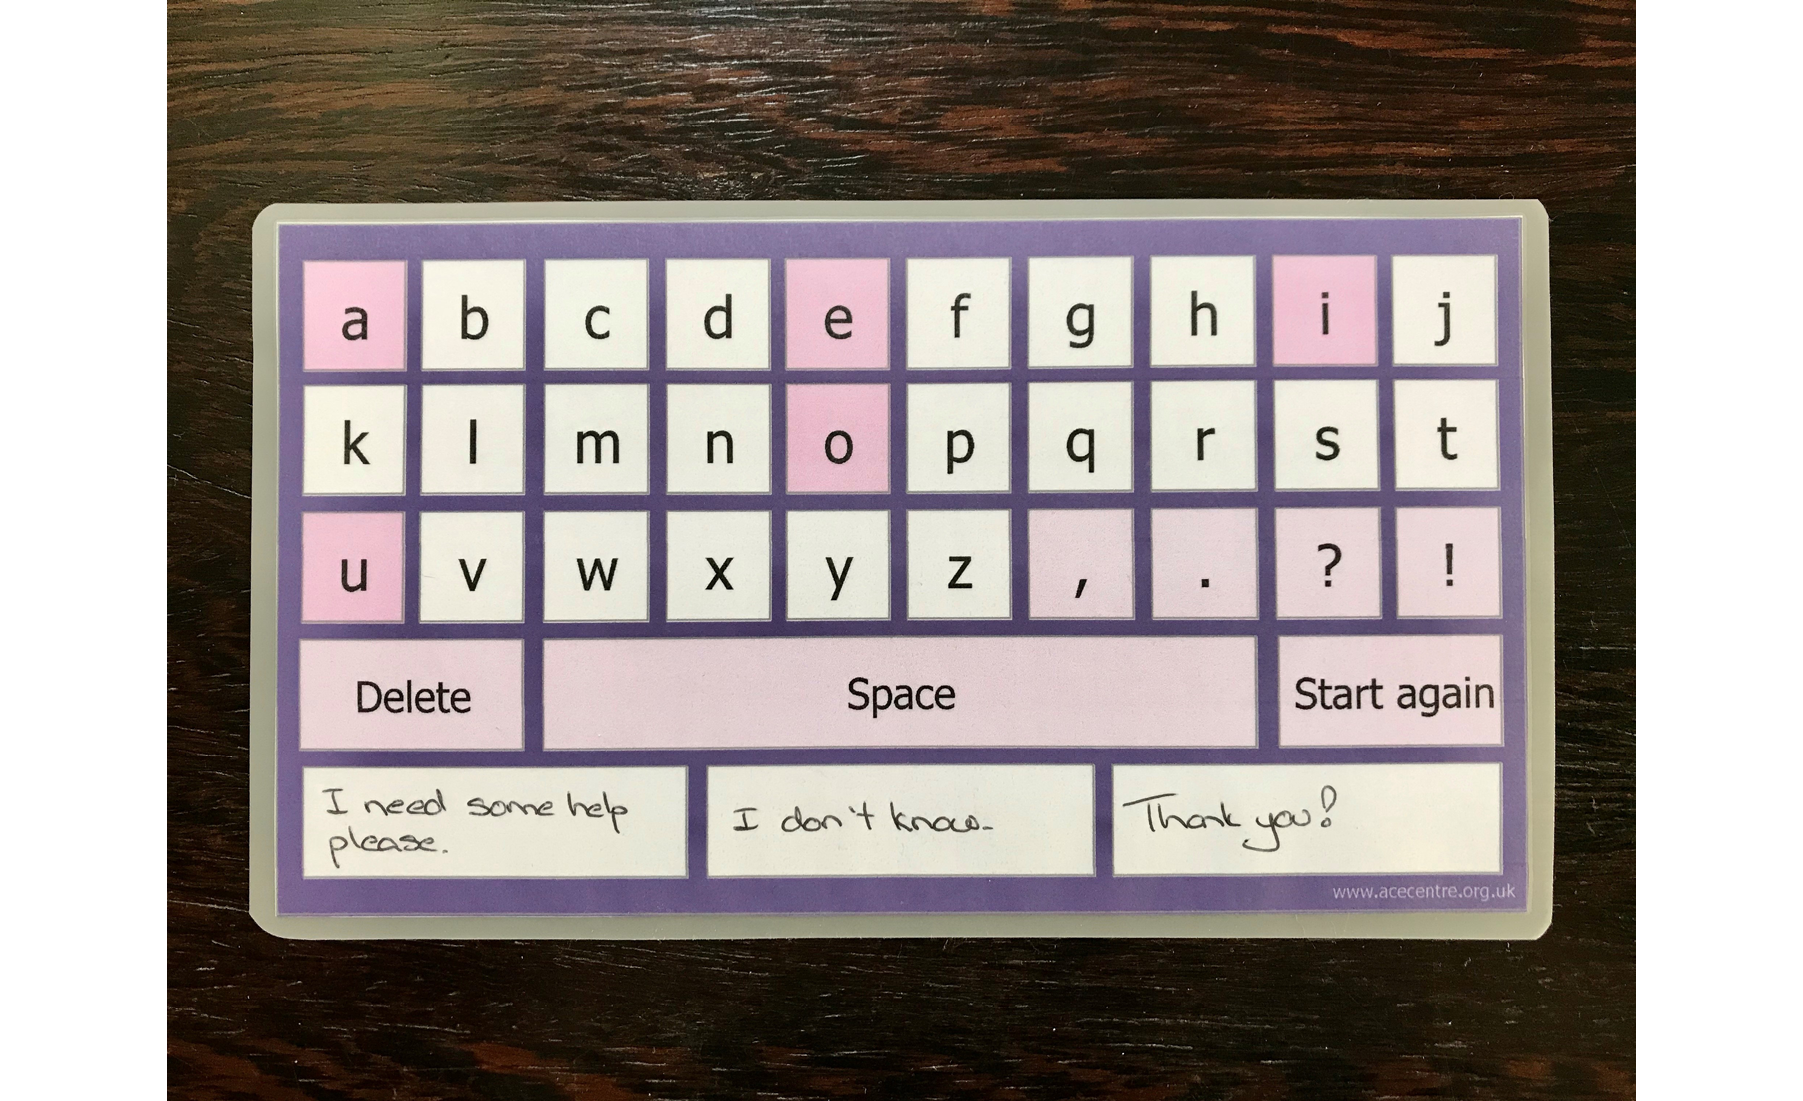 a b c d e f g h i j
k l m n o p q r s t
u v w x y z , . ? !
Delete Space Start again
I need some help
please.
I don't know.
Thank you!
www.acecentre.org.uk